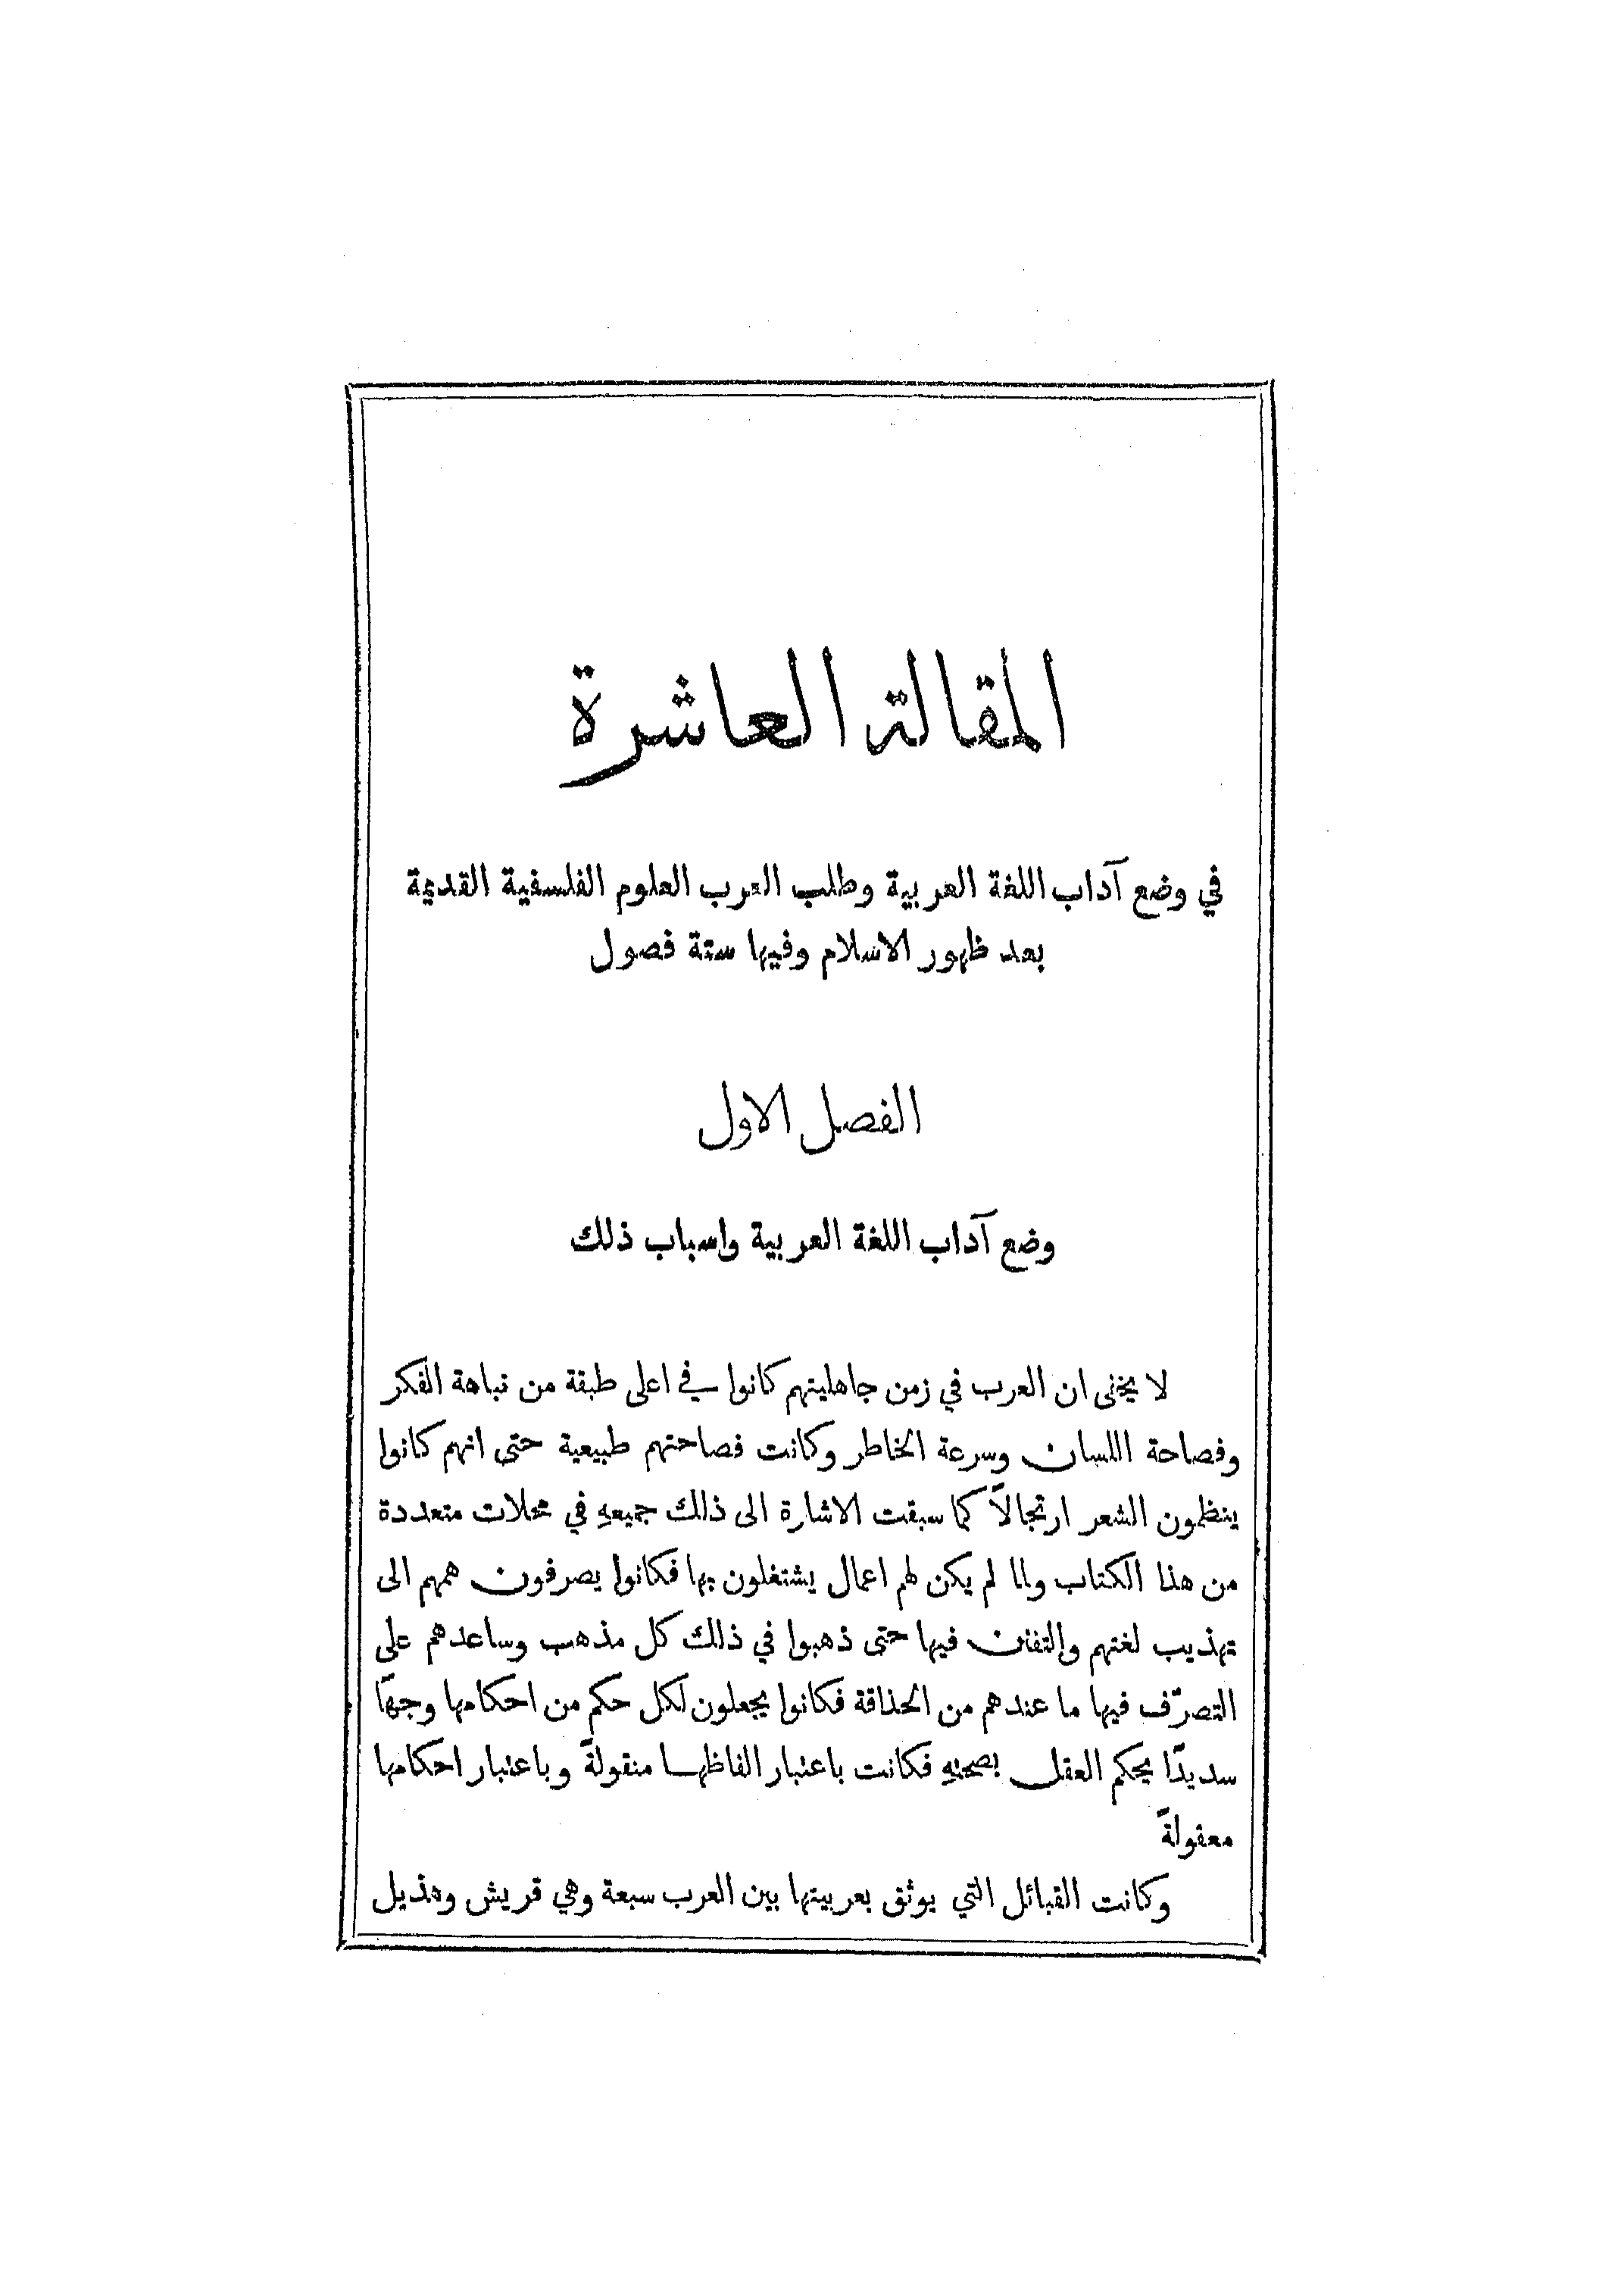 المقالة العاشرة
في وضع آداب اللغة العربية وطلب العرب العلوم الفلسفية القديمة
بعد ظهور الاسلام وفيها ستة فصول
الفصل الاول
وضع آداب اللغة العربية واسباب ذلك
لا يخفى ان العرب في زمن جاهليتهم كانوا في اعلى طبقة من نباهة الفكر
وفصاحة اللسان وسرعة الخاطر وكانت فصاحتهم طبيعية حتى انهم كانوا
ينظمون الشعر ارتجالاً كما سبقت الاشارة الى ذلك جميعهِ في محلات متعددة
من هذا الكتاب ولما لم يكن لهم اعمال يشتغلون بها فكانوا يصرفون هممهم الى
تهذيب لغتهم والتفنن فيها حتى ذهبوا في ذلك كل مذهب وساعدهم على
التصرّف فيها ما عندهم من الحذاقة فكانوا يجعلون لكل حكم من احكامها وجهًا
سديدًا يحكم العقل بصحتهِ فكانت باعتبار الفاظها منقولةً وباعتبار احكامها
معقولةً
وكانت القبائل التي يوثق بعربيتها بين العرب سبعة وهي قريش وهذيل